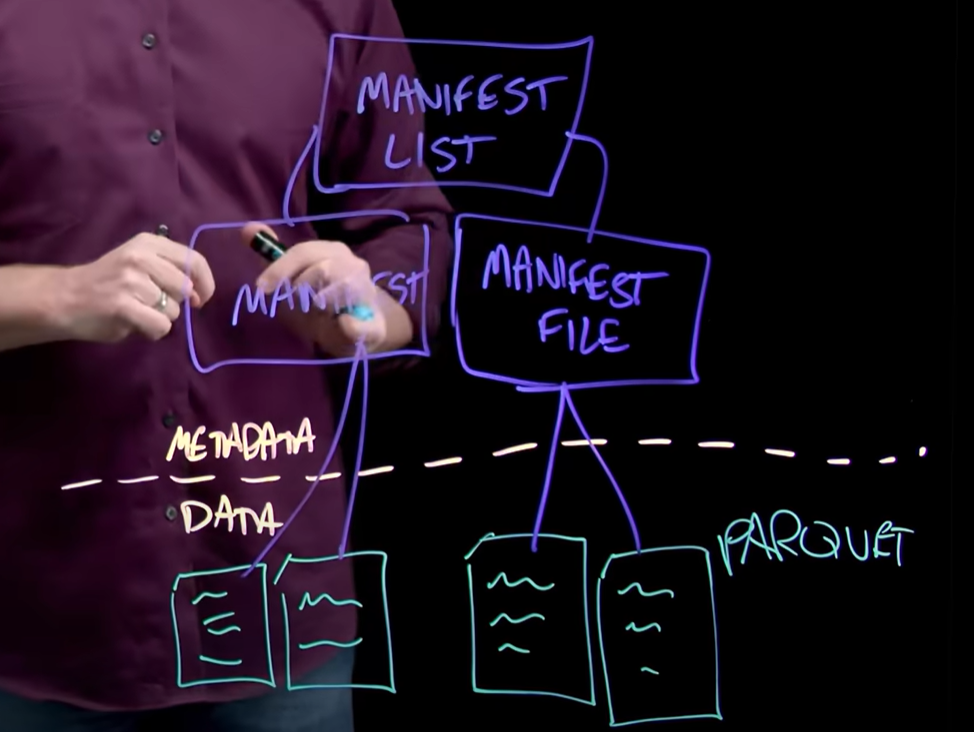 MANIFEST
LIST
MANIFEST
MANIFEST
FILE
METADATA
DATA
PARQUET